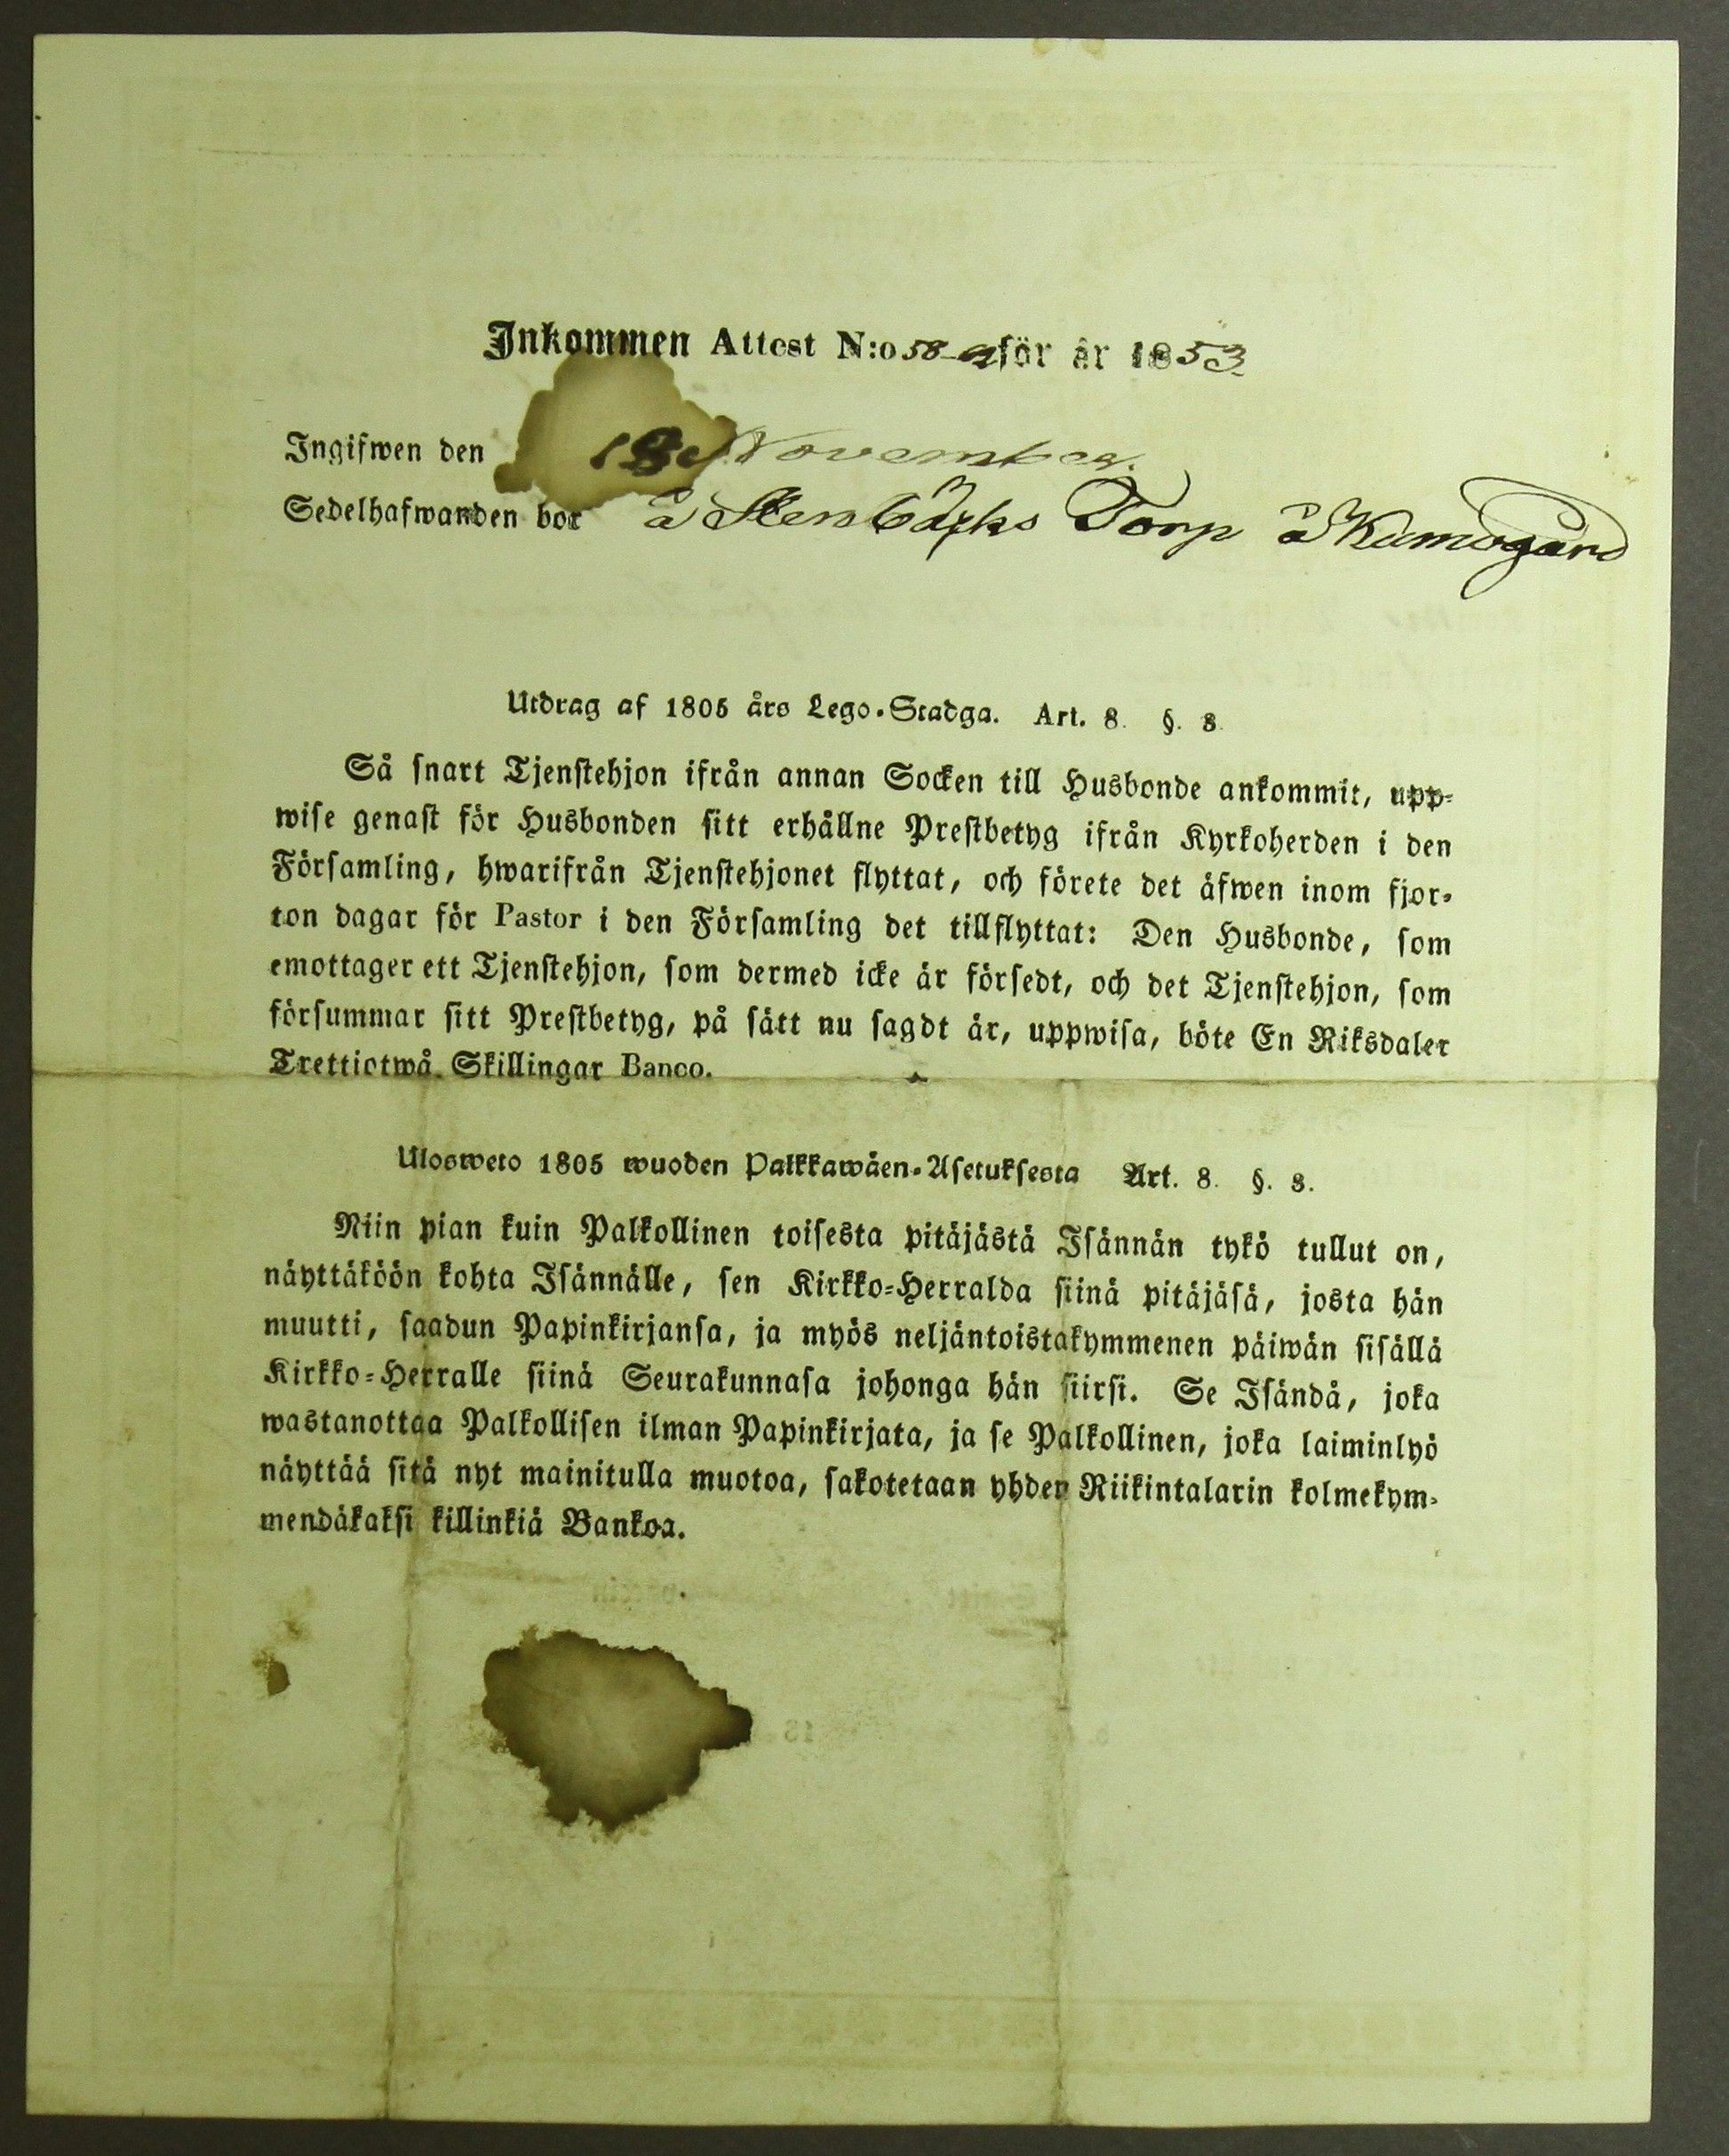 Inkommen Attest N:o 58 a för år 1853
Ingifwen den 18 November.
Sedelhafwanden bor å Stenbäcks Torp å Kumogård
Utdrag af 1805 års Lego-Stadga. Art. 8. §. 8.
Så snart Tjenstehjon ifrån annan Socken till Husbonde ankommit, upp-
wise genast för Husbonden sitt erhållne Prestbetyg ifrån Kyrkoherden i den
Församling, hwarifrån Tjenstehjonet flyttat, och förete det äfwen inom fjor-
ton dagar för Pastor i den Församling det tillflyttat: Den Husbonde, som
emottager ett Tjenstehjon, som dermed icke är försedt, och det Tjenstehjon, som
försummar sitt Prestbetyg, på sätt nu sagdt är, uppwisa, böte En Riksdaler
Trettiotwå Skillingar Banco.
Ulosweto 1805 wuoden Palkkawäen-Asetuksesta Art. 8. §. 8.
Niin pian kuin Palkollinen toisesta pitäjästä Isännän tykö tullut on,
näyttäköön kohta Isännälle, sen Kirkko-Herralda siinä pitäjäsä, josta hän
muutti, saadun Papinkirjansa, ja myös neljäntoistakymmenen päiwän sisällä
Kirkko-Herralle siinä Seurakunnasa johonga hän siirsi. Se Isändä, joka
wastanottaa Palkollisen ilman Papinkirjata, ja se Palkollinen, joka laiminlyö
näyttää sitä nyt mainitulla muotoa, sakotetaan yhden Riikintalarin kolmekym-
mendäkaksi killinkiä Bankoa.